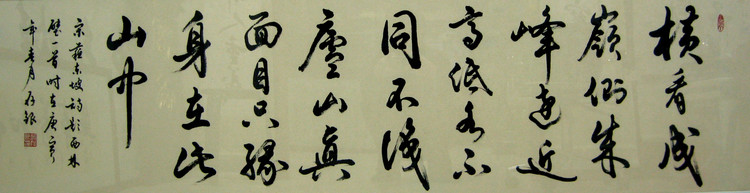 橫看成
嶺側成
峰遠近
高低各不
同不識
廬山眞
面目只緣
身在此
山中
宋蘇東坡詩題西林
壁一首時在庚寅
年月